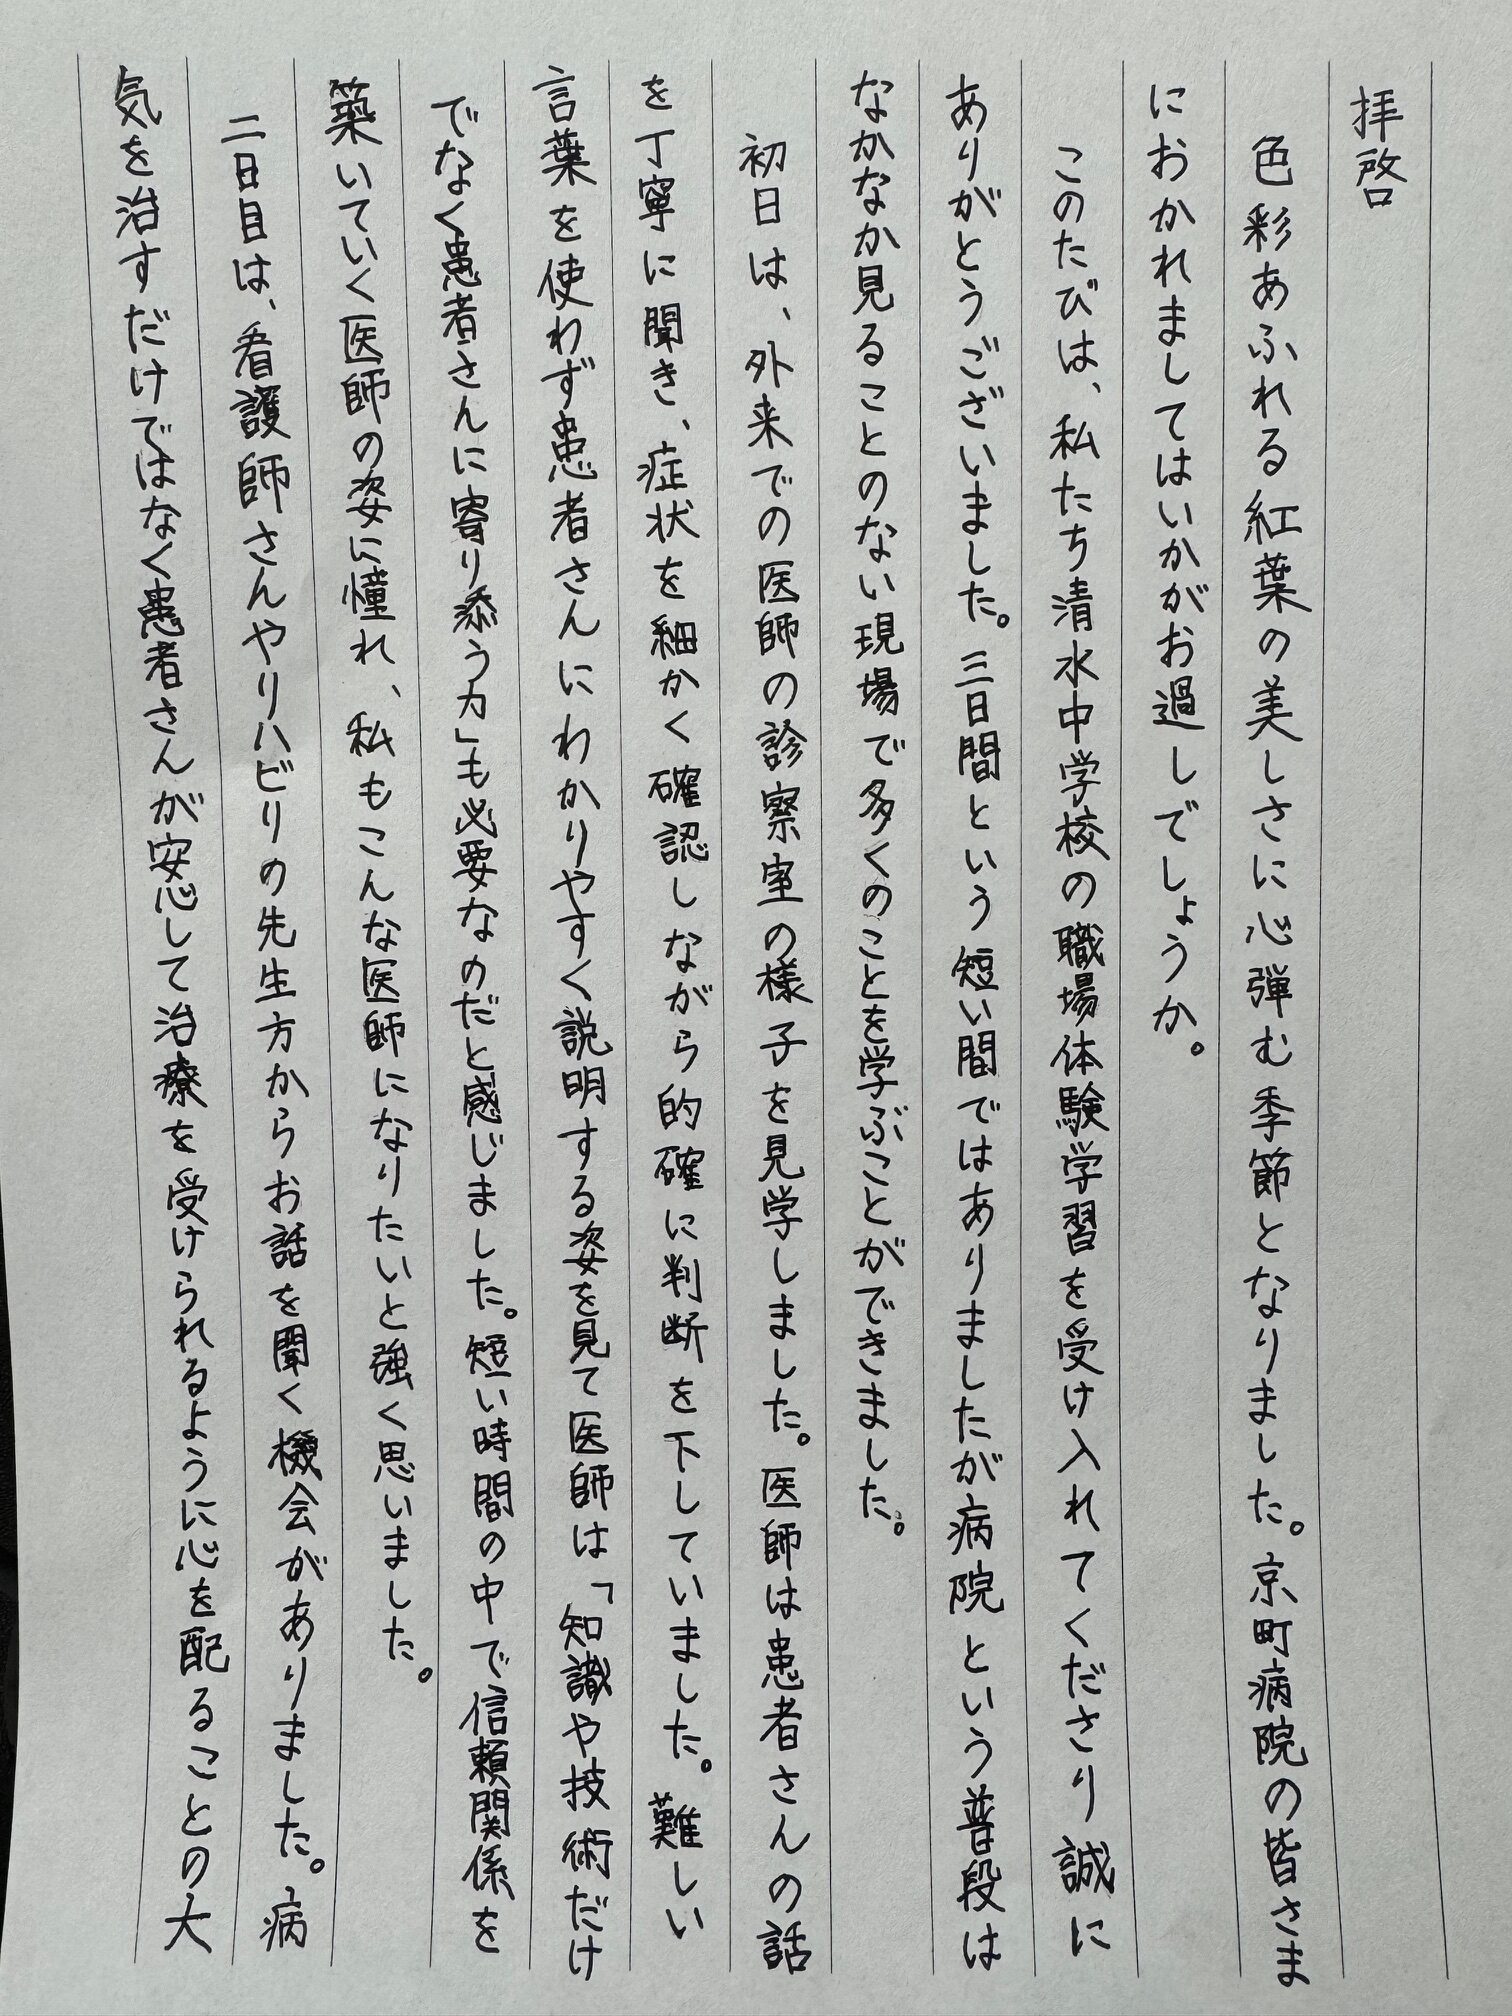 拝啓
色彩あふれる紅葉の美しさに心弾む季節となりました。京町病院の皆さま
におかれましてはいかがお過しでしょうか。
このたびは、私たち清水中学校の職場体験学習を受け入れてくださり誠に
ありがとうございました。三日間という短い間ではありましたが病院という普段は
なかなか見ることのない現場で多くのことを学ぶことができました。
初日は、外来での医師の診察室の様子を見学しました。医師は患者さんの話
を丁寧に聞き、症状を細かく確認しながら的確に判断を下していました。難しい
言葉を使わず患者さんにわかりやすく説明する姿を見て医師は「知識や技術だけ
でなく患者さんに寄り添う力」も必要なのだと感じました。短い時間の中で信頼関係を
築いていく医師の姿に憧れ、私もこんな医師になりたいと強く思いました。
二日目は、看護師さんやリハビリの先生方からお話を聞く機会がありました。病
気を治すだけではなく患者さんが安心して治療を受けられるように心を配ることの大